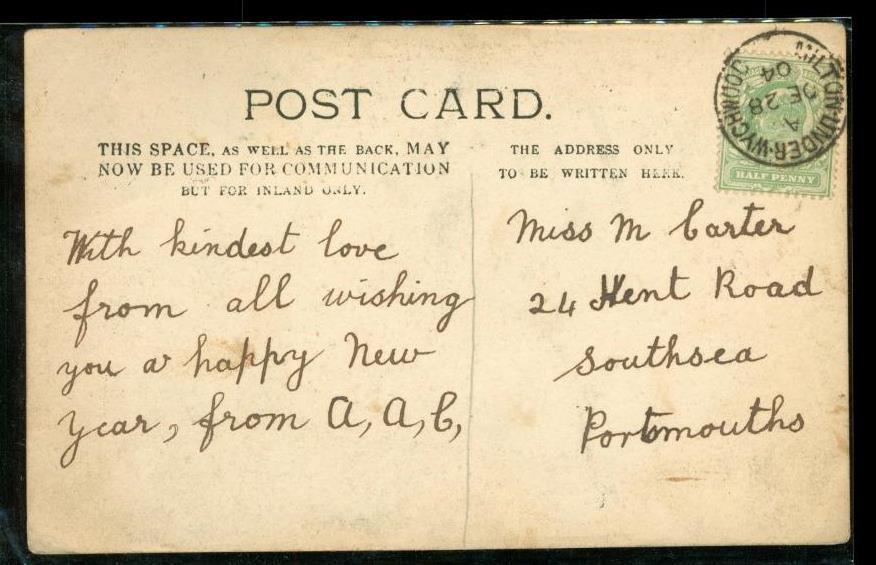 POST CARD.
THIS SPACE, AS WELL AS THE BACK, MAY
NOW BE USED FOR COMMUNICATION
BUT FOR INLAND ONLY.
THE ADDRESS ONLY
TO BE WRITTEN HERE.
MILTON-UNDER-WYCHWOOD
A
DE 28
04
HALF PENNY
With kindest love
from all wishing
you a happy New
Year, from A, A, C,
Miss M Carter
24 Kent Road
Southsea
Portsmouths